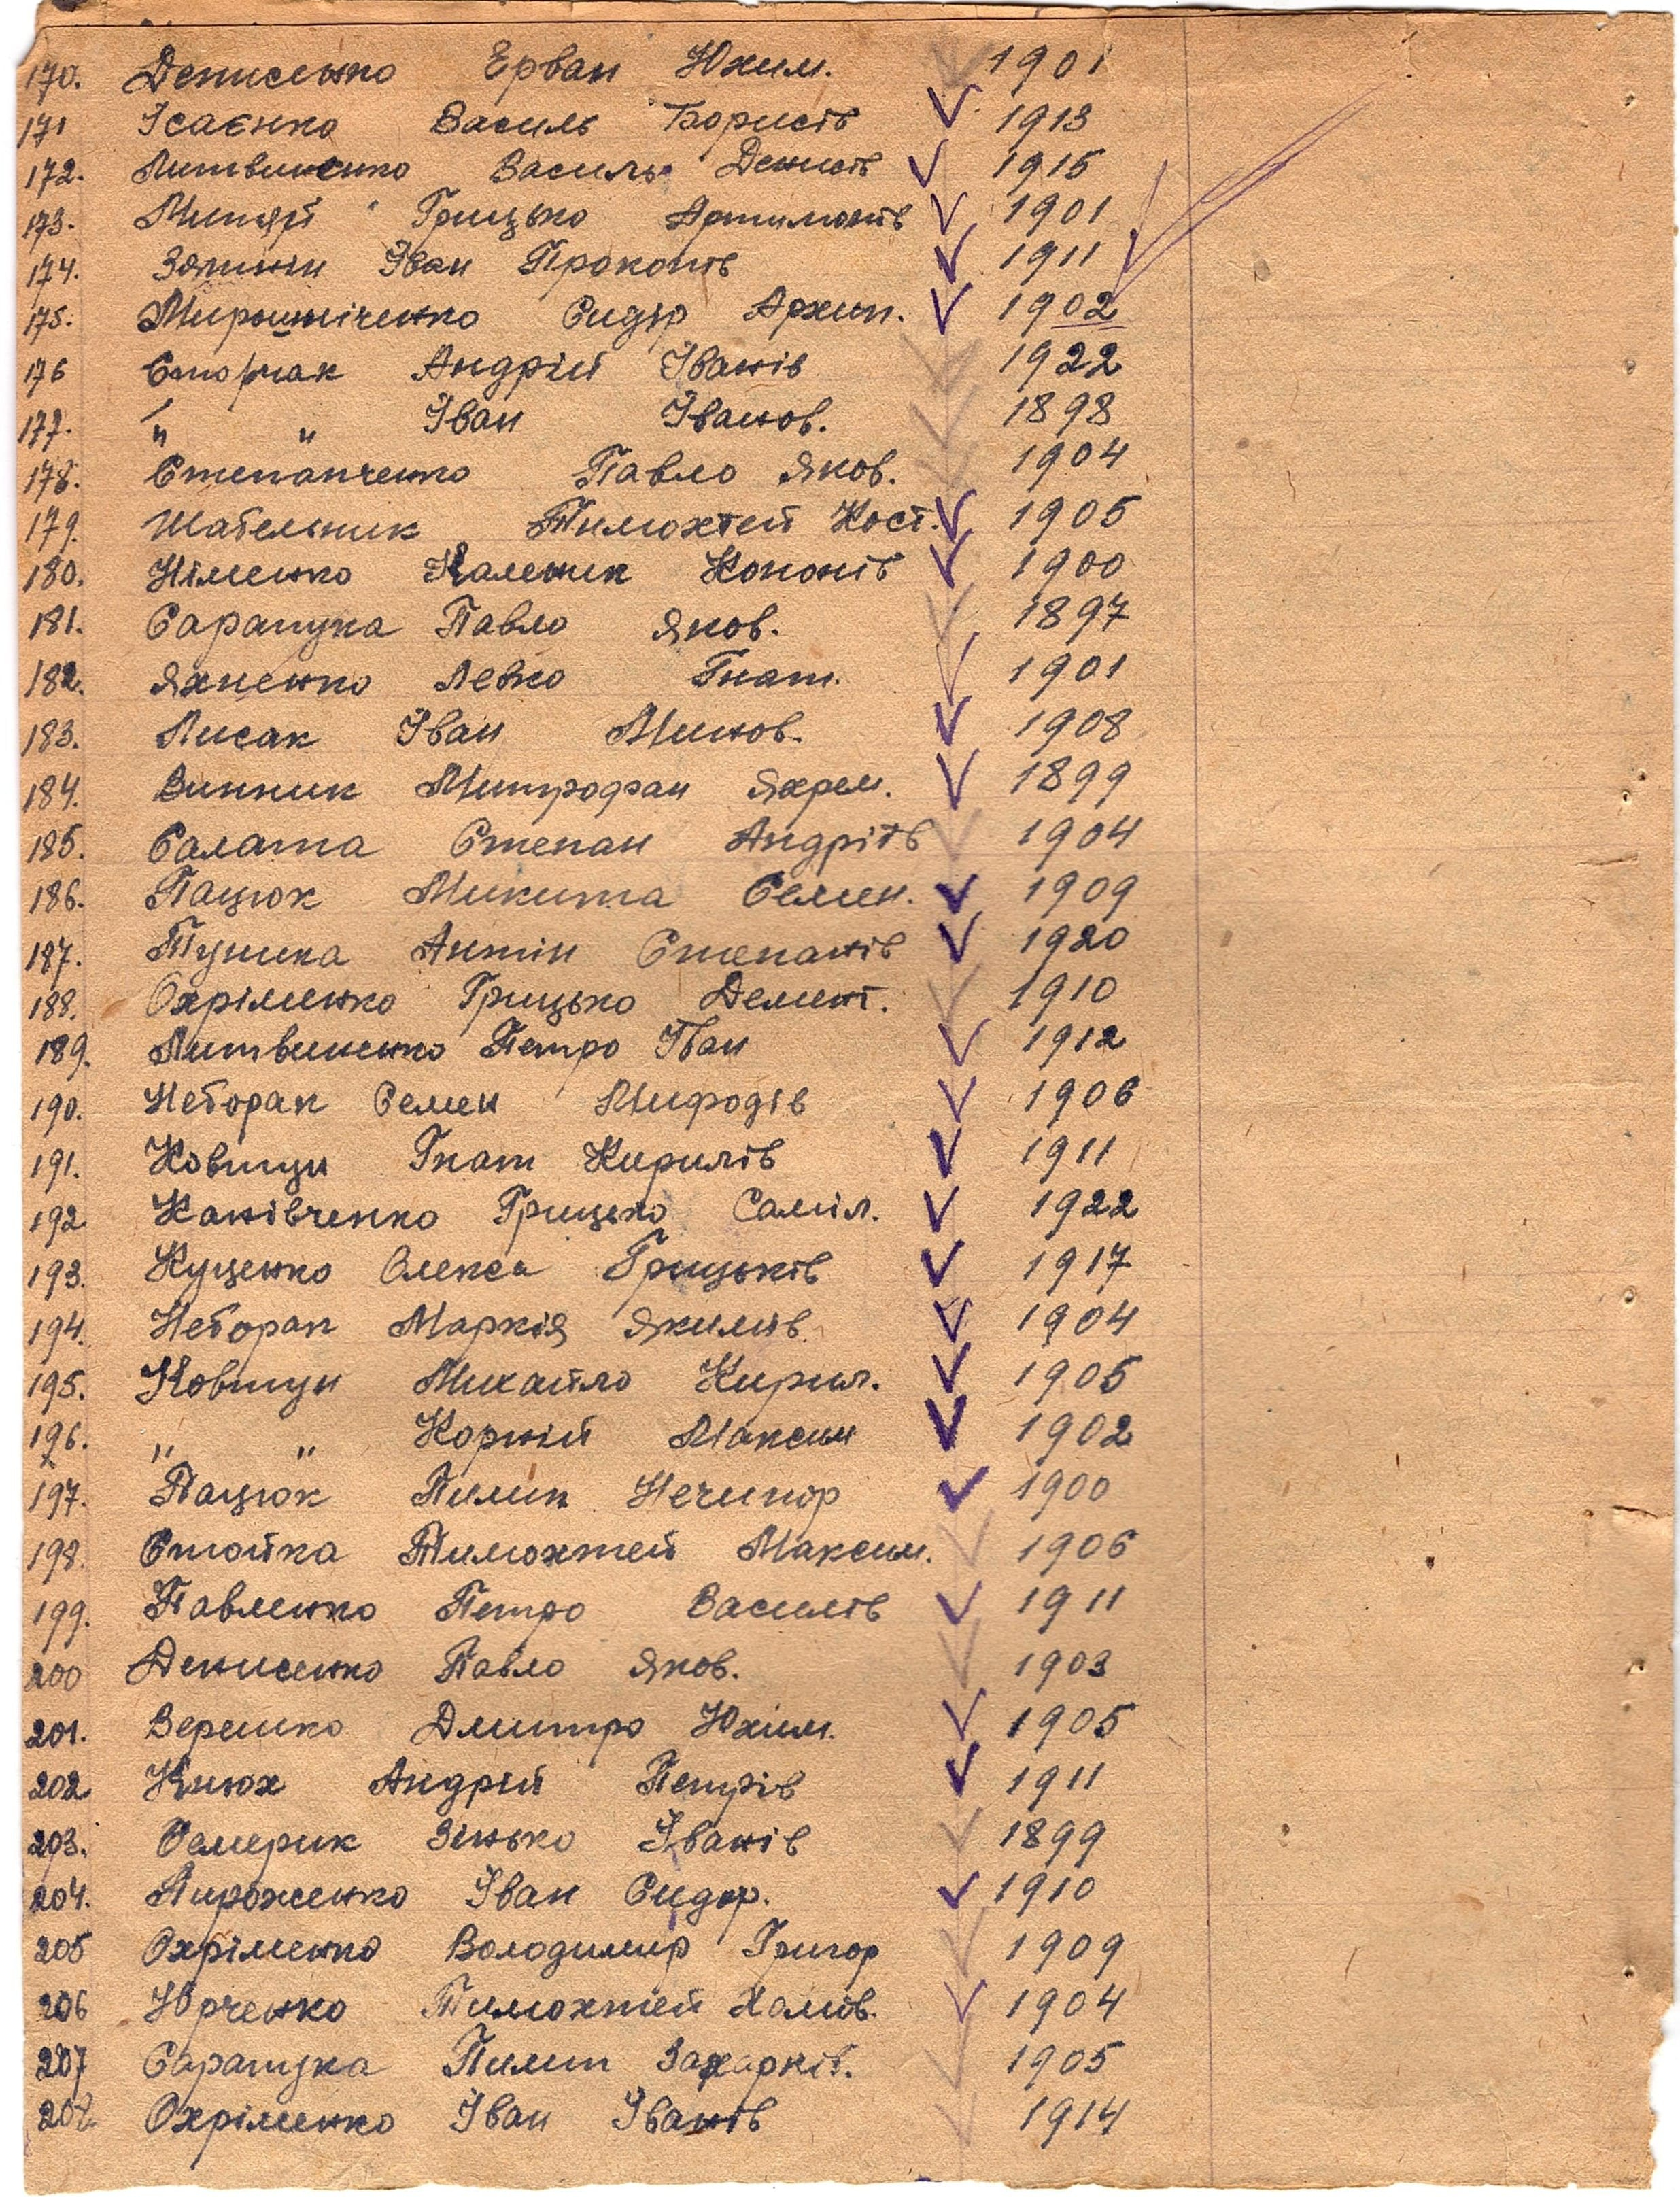 170. Денисенко Ерван Юхим. 1901
171 Ісаєнко Василь Борисів 1913
172. Литвиненко Василь Денисів 1915
173. Митяй Грицько Артимонів 1901
174. Іван Прокопів 1911
175. Мирошніченко Сидір Архип. 1902
176 Сторчак Андрій Іванів 1922
177. " " Іван Іванов. 1898
178. Степанченко Павло Яков. 1904
179. Шабельник Тимохтей Кост. 1905
180. Німенко Каленик Кононів 1900
181. Сарапука Павло Яков. 1897
182. Яхненко Левко Гнат. 1901
183. Лисак Іван Минов. 1908
184. Винник Митрофан Яхрем. 1899
185. Салата Степан Андріїв 1904
186. Пацюк Микита Семен. 1909
187. Тушка Антін Степанів 1920
188. Охріменко Грицько Демент. 1910
189. Литвиненко Петро Іван 1912
190. Неборак Семен Мифодів 1906
191. Ковтун Гнат Кирилів 1911
192 Канівченко Грицько Саміл. 1922
193. Куценко Олекса Грицьків 1917
194. Неборак Маркія Якимів. 1904
195. Ковтун Михайло Кирил. 1905
196. " " Корній Максим 1902
197. Пацюк Пилип Нечипор 1900
198. Стойка Тимохтей Максим. 1906
199. Павленко Петро Василів 1911
200 Денисенко Павло Яков. 1903
201. Верешко Дмитро Юхим. 1905
202 Кнюх Андрій Петрів 1911
203. Семерик Зінько Іванів 1899
204. Пироженко Іван Сидор. 1910
205 Охріменко Володимир Григор 1909
206 Юрченко Тимохтей Хомів. 1904
207 Сарапука Пилип Захарків. 1905
208 Охріменко Іван Іванів 1914